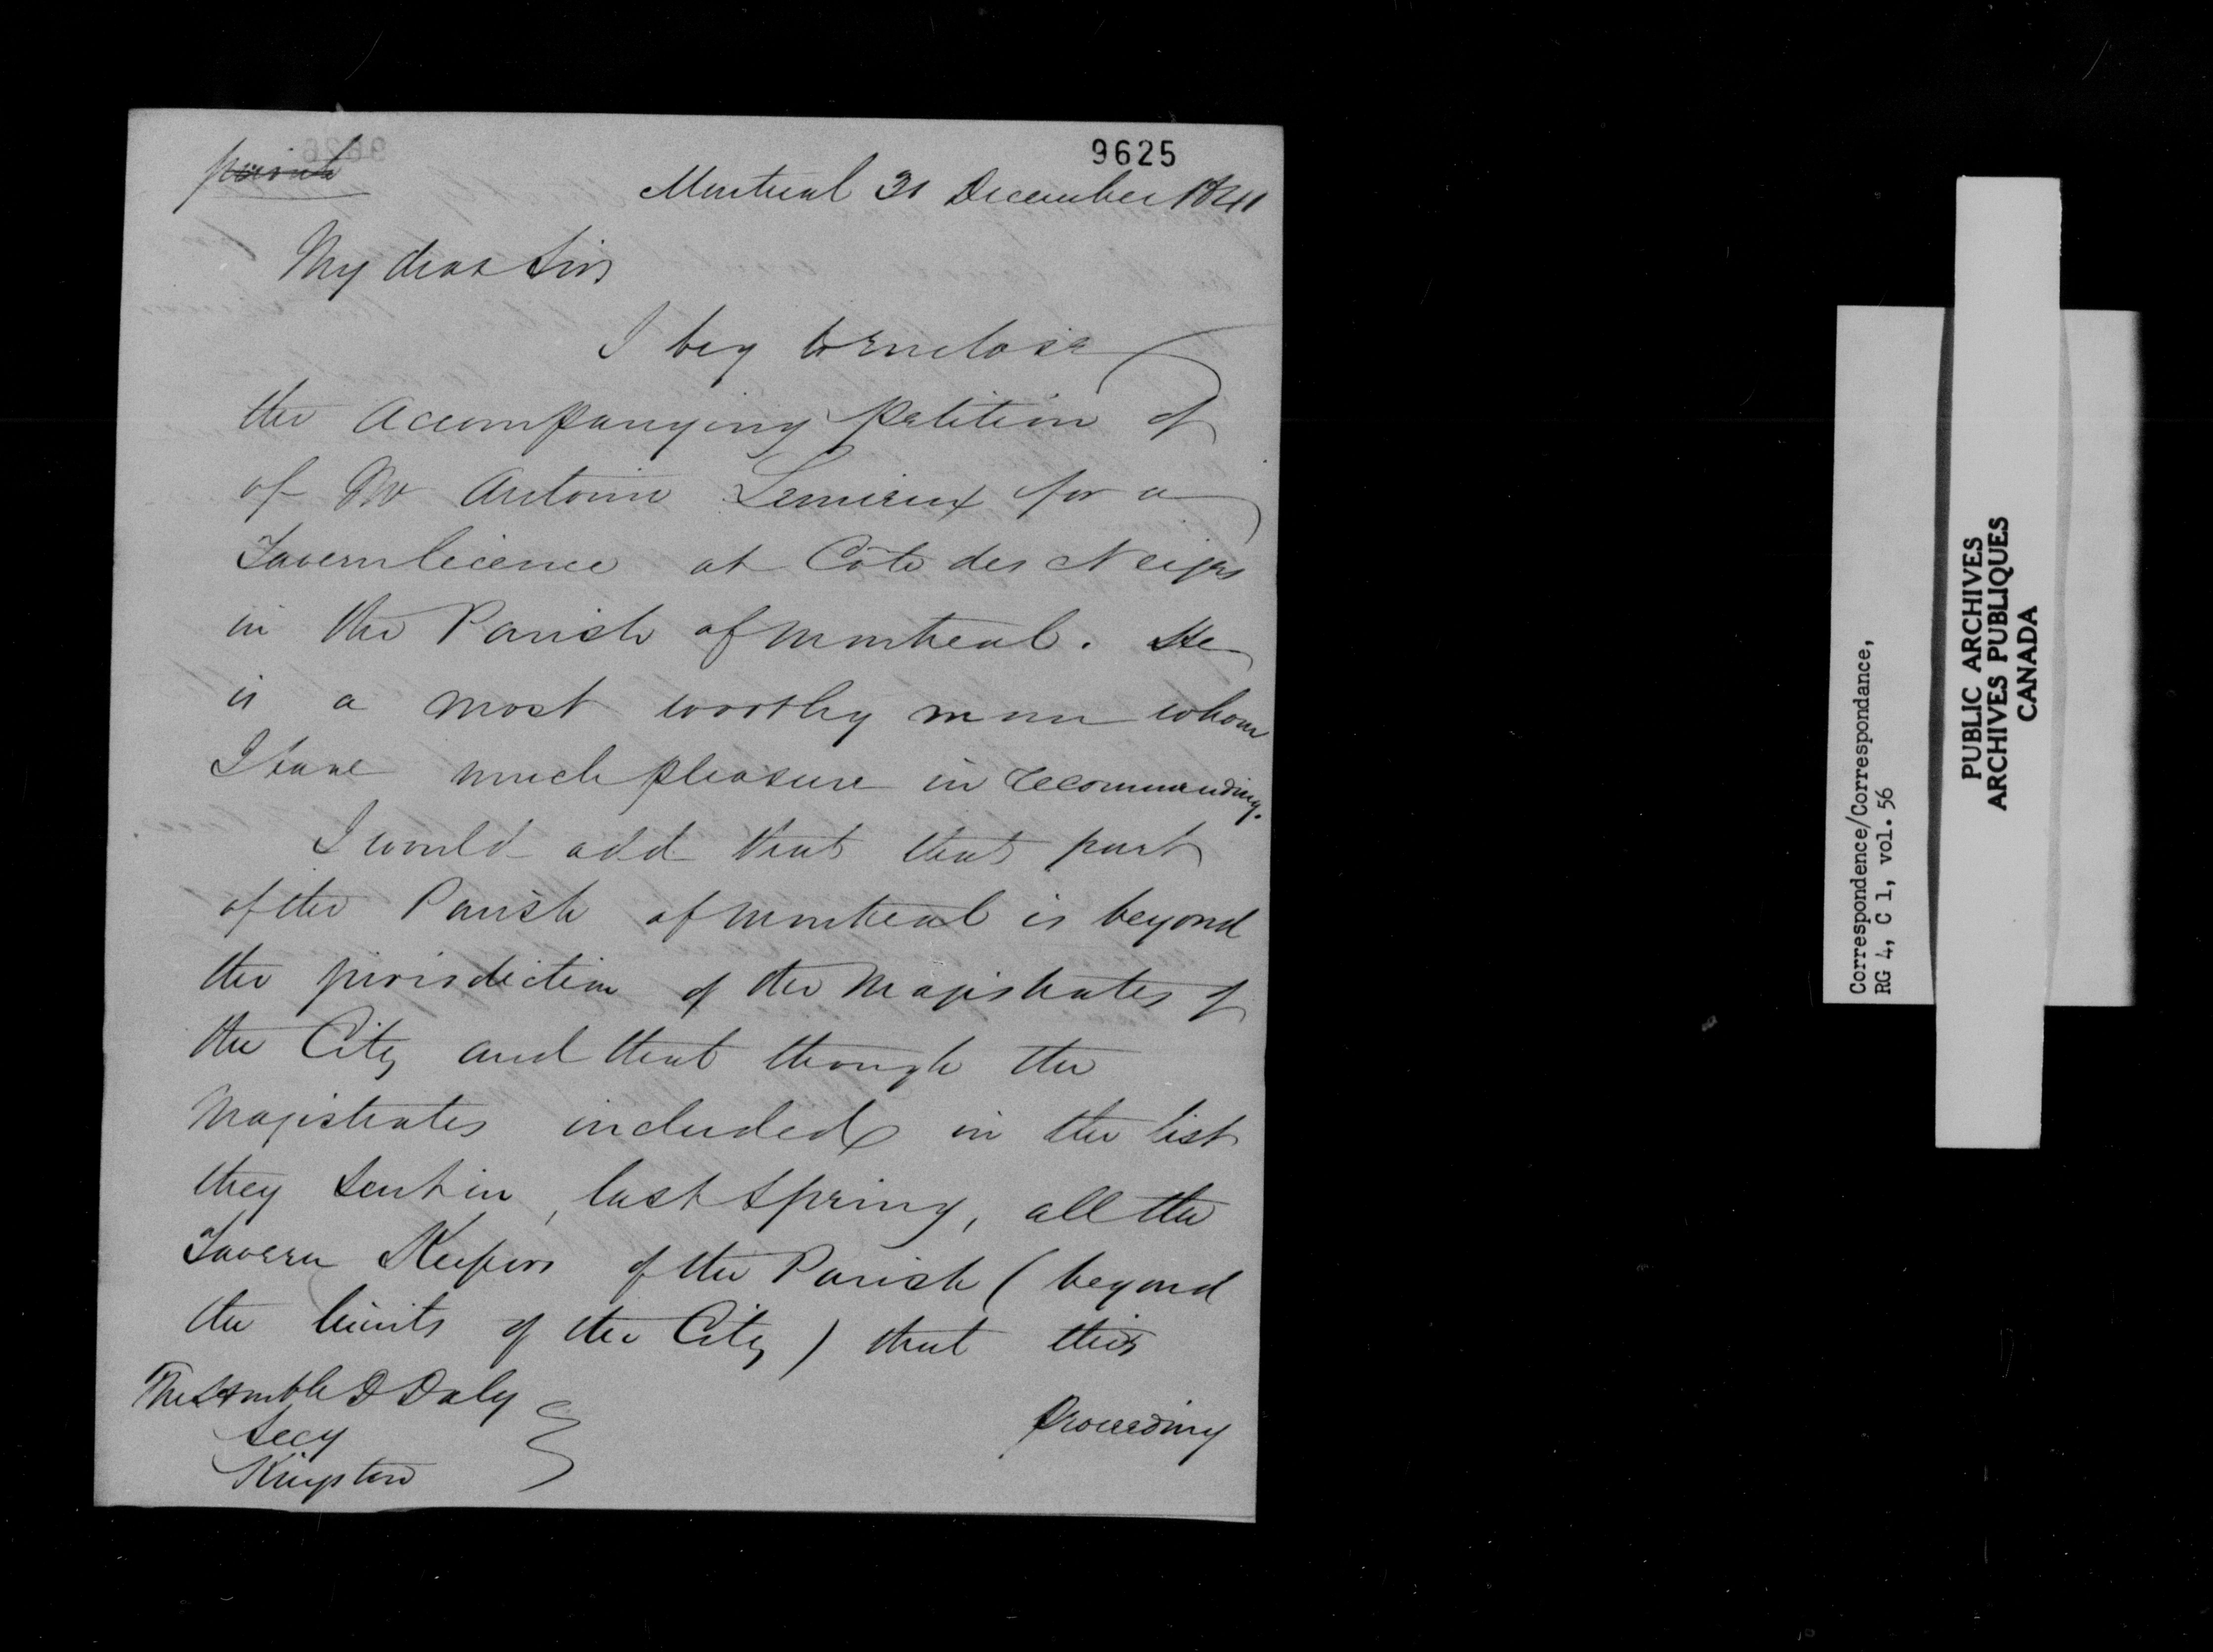 9625
private
Montreal 31 December 1841
My dear Sir
I beg to enclose
the accompanying petition of
of Mr Antoine Lemieux for a
Tavern licence at Côte des Neiges
in the Parish of Montreal. He
is a most worthy man whom
I have much pleasure in recommending.
I would add that that part
of the Parish of Montreal is beyond
the jurisdiction of the Magistrates of
the City and that though the
Magistrates included in the list
they sent in, last Spring, all the
Tavern Keepers of the Parish (beyond
the limits of the City) that this
proceeding
The Honble D Daly
Secy
Kingston
Correspondence/Correspondance,
RG 4, C 1, vol. 56
PUBLIC ARCHIVES
ARCHIVES PUBLIQUES
CANADA